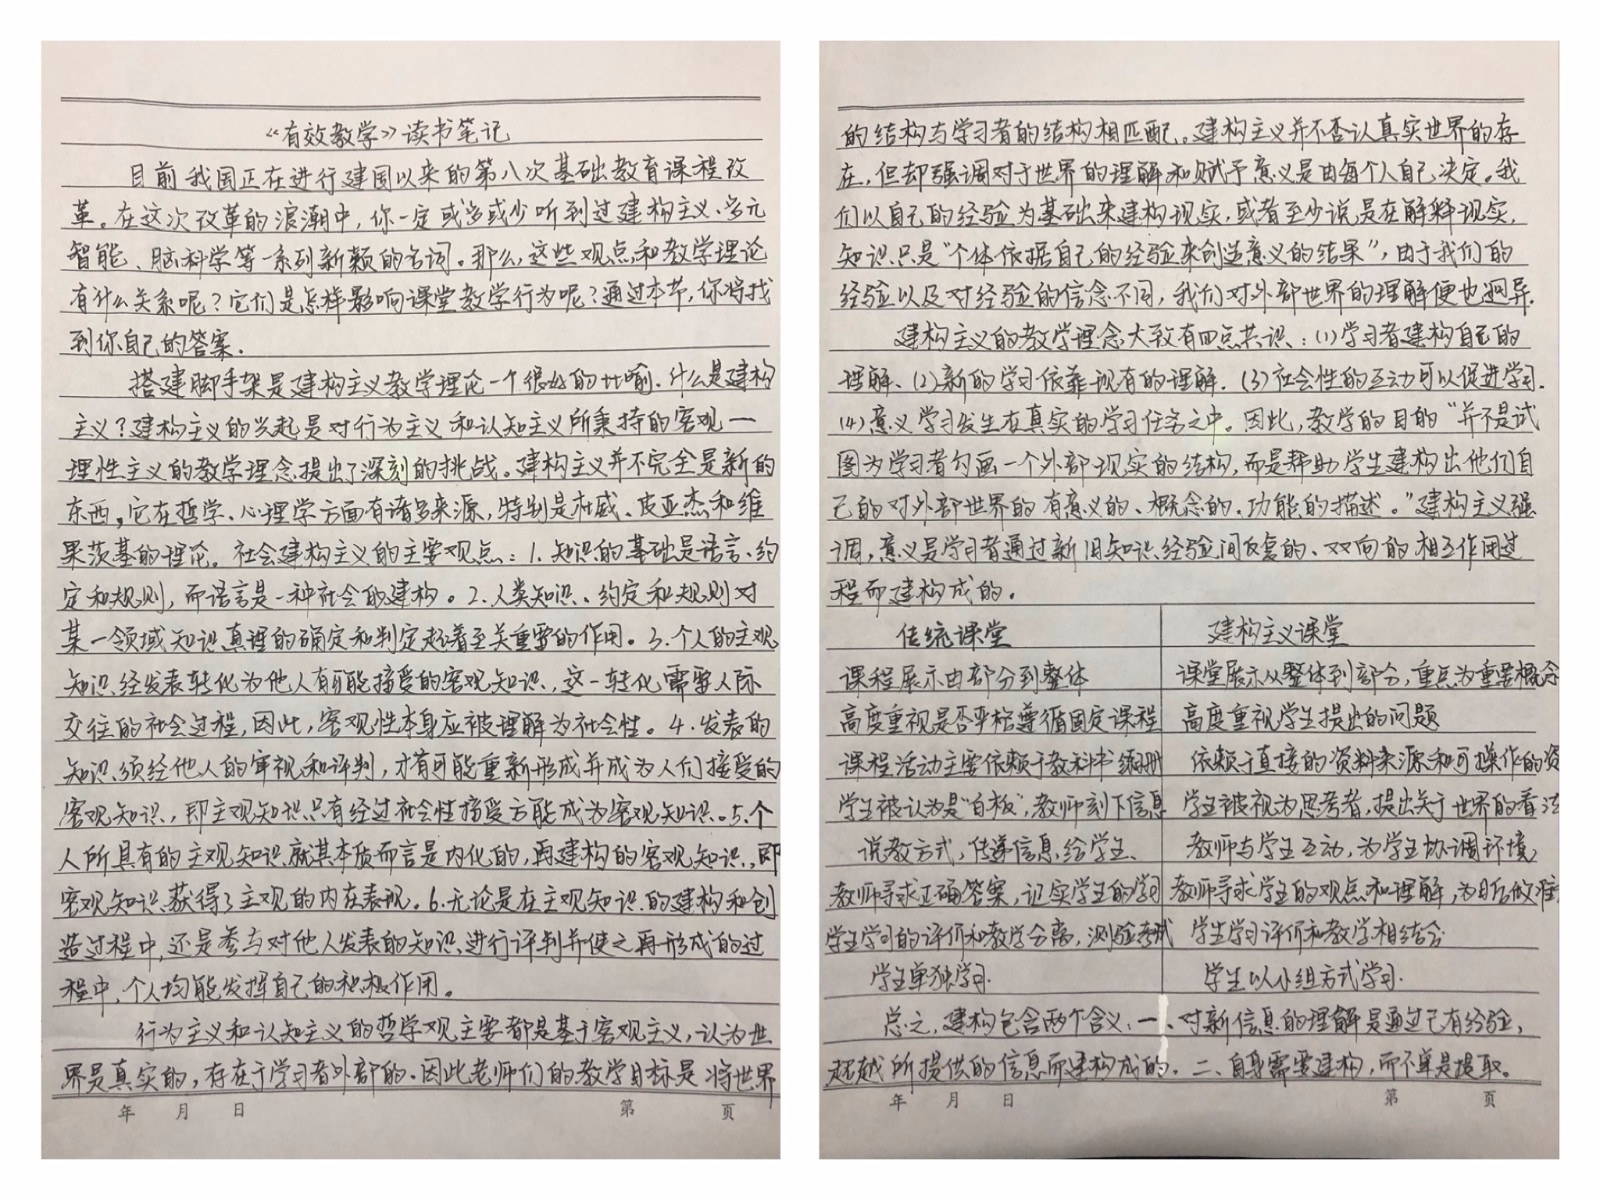 《有效教学》读书笔记
目前我国正在进行建国以来的第八次基础教育课程改
革。在这次改革的浪潮中,你一定或多或少听到过建构主义、多元
智能、脑科学等一系列新颖的名词。那么,这些观点和教学理论
有什么关系呢?它们是怎样影响课堂教学行为呢?通过本节,你将找
到你自己的答案.
搭建脚手架是建构主义教学理论一个很好的比喻.什么是建构
主义?建构主义的兴起是对行为主义和认知主义所秉持的客观一
理性主义的教学理念提出了深刻的挑战。建构主义并不完全是新的
东西,它在哲学、心理学方面有诸多来源,特别是杜威、皮亚杰和维
果茨基的理论。社会建构主义的主要观点:1.知识的基础是语言、约
定和规则,而语言是一种社会的建构。2.人类知识、约定和规则对
某一领域知识真理的确定和判定起着至关重要的作用。3.个人的主观
知识经发表转化为他人有可能接受的客观知识,这一转化需要人际
交往的社会过程,因此,客观性本身应被理解为社会性。4.发表的
知识须经他人的审视和评判,才有可能重新形成并成为人们接受的
客观知识,即主观知识只有经过社会性接受方能成为客观知识。5.个
人所具有的主观知识就其本质而言是内化的,再建构的客观知识,即
客观知识获得了主观的内在表现。6.无论是在主观知识的建构和创
造过程中,还是参与对他人发表的知识进行评判并使之再形成的过
程中,个人均能发挥自己的积极作用。
行为主义和认知主义的哲学观主要都是基于客观主义,认为世
界是真实的,存在于学习者外部的.因此老师们的教学目标是将世界
年 月 日 第 页
的结构与学习者的结构相匹配。建构主义并不否认真实世界的存
在,但却强调对于世界的理解和赋予意义是由每个人自己决定。我
们以自己的经验为基础来建构现实,或者至少说是在解释现实,
知识只是“个体依据自己的经验来创造意义的结果”,由于我们的
经验以及对经验的信念不同,我们对外部世界的理解便也迥异.
建构主义的教学理念大致有四点共识:(1)学习者建构自己的
理解.(2)新的学习依靠现有的理解.(3)社会性的互动可以促进学习.
(4)意义学习发生在真实的学习任务之中。因此,教学的目的“并不是试
图为学习者勾画一个外部现实的结构,而是帮助学生建构出他们自
己的对外部世界的有意义的、概念的、功能的描述。”建构主义强
调,意义是学习者通过新旧知识经验间反复的、双向的相互作用过
程而建构成的。
传统课堂 建构主义课堂
课程展示由部分到整体 课堂展示从整体到部分,重点为重要概念
高度重视是否严格遵循固定课程 高度重视学生提出的问题
课程活动主要依赖于教科书练习册 依赖于直接的资料来源和可操作的资
学生被认为是“白板”,教师刻下信息 学生被视为思考者,提出关于世界的看法
说教方式,传递信息给学生、 教师与学生互动,为学生协调环境
教师寻求正确答案,证实学生的学习 教师寻求学生的观点和理解,为日后做准
学生学习的评价和教学分离,测验考试 学生学习评价和教学相结合
学生单独学习. 学生以小组方式学习.
总之,建构包含两个含义:一、对新信息的理解是通过已有经验,
超越所提供的信息而建构成的.二、自身需要建构,而不单是提取。
年 月 日 第 页